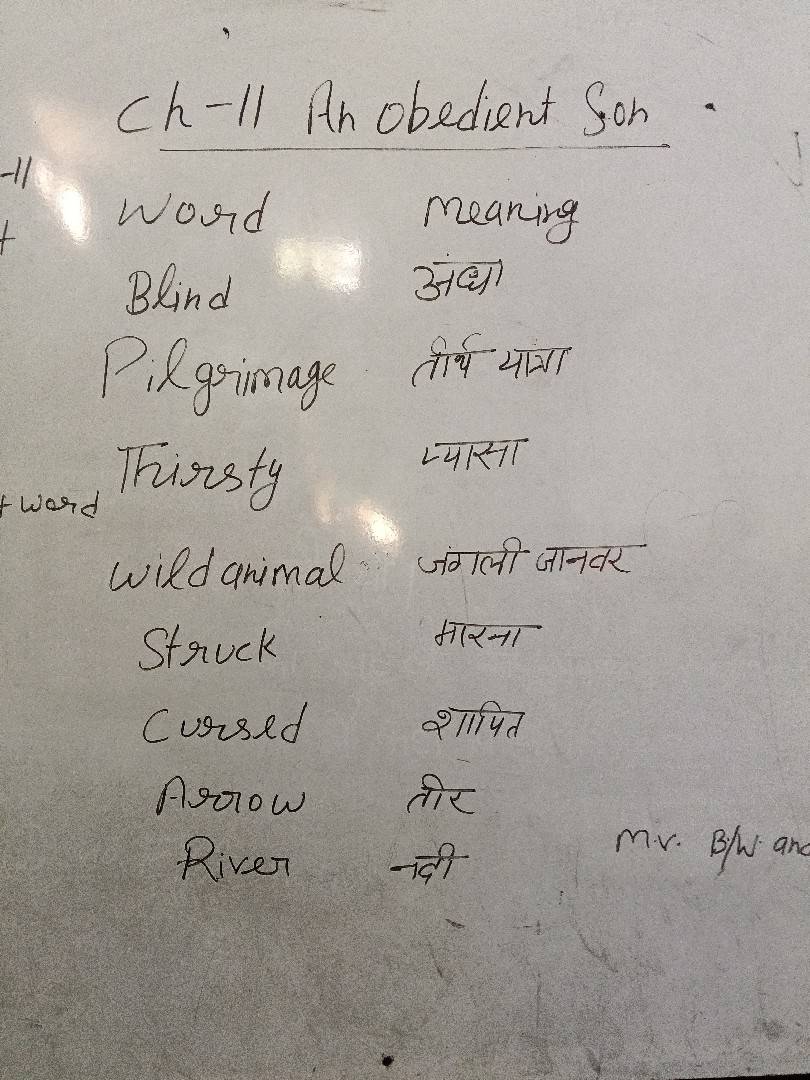 Ch-11 An obedient Son
-11
Word Meaning
Blind अंधा
Pilgrimage तीर्थ यात्रा
Thirsty प्यासा
+ word
Wild animal जंगली जानवर
Struck मारना
Cursed शापित
Arrow तीर
M.V. B/W and
River नदी